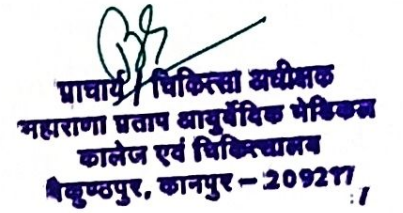 प्राचार्य / चिकित्सा अधीक्षक
महाराणा प्रताप आयुर्वेदिक मेडिकल
कालेज एवं चिकित्सालय
बैकुण्ठपुर, कानपुर - 209217